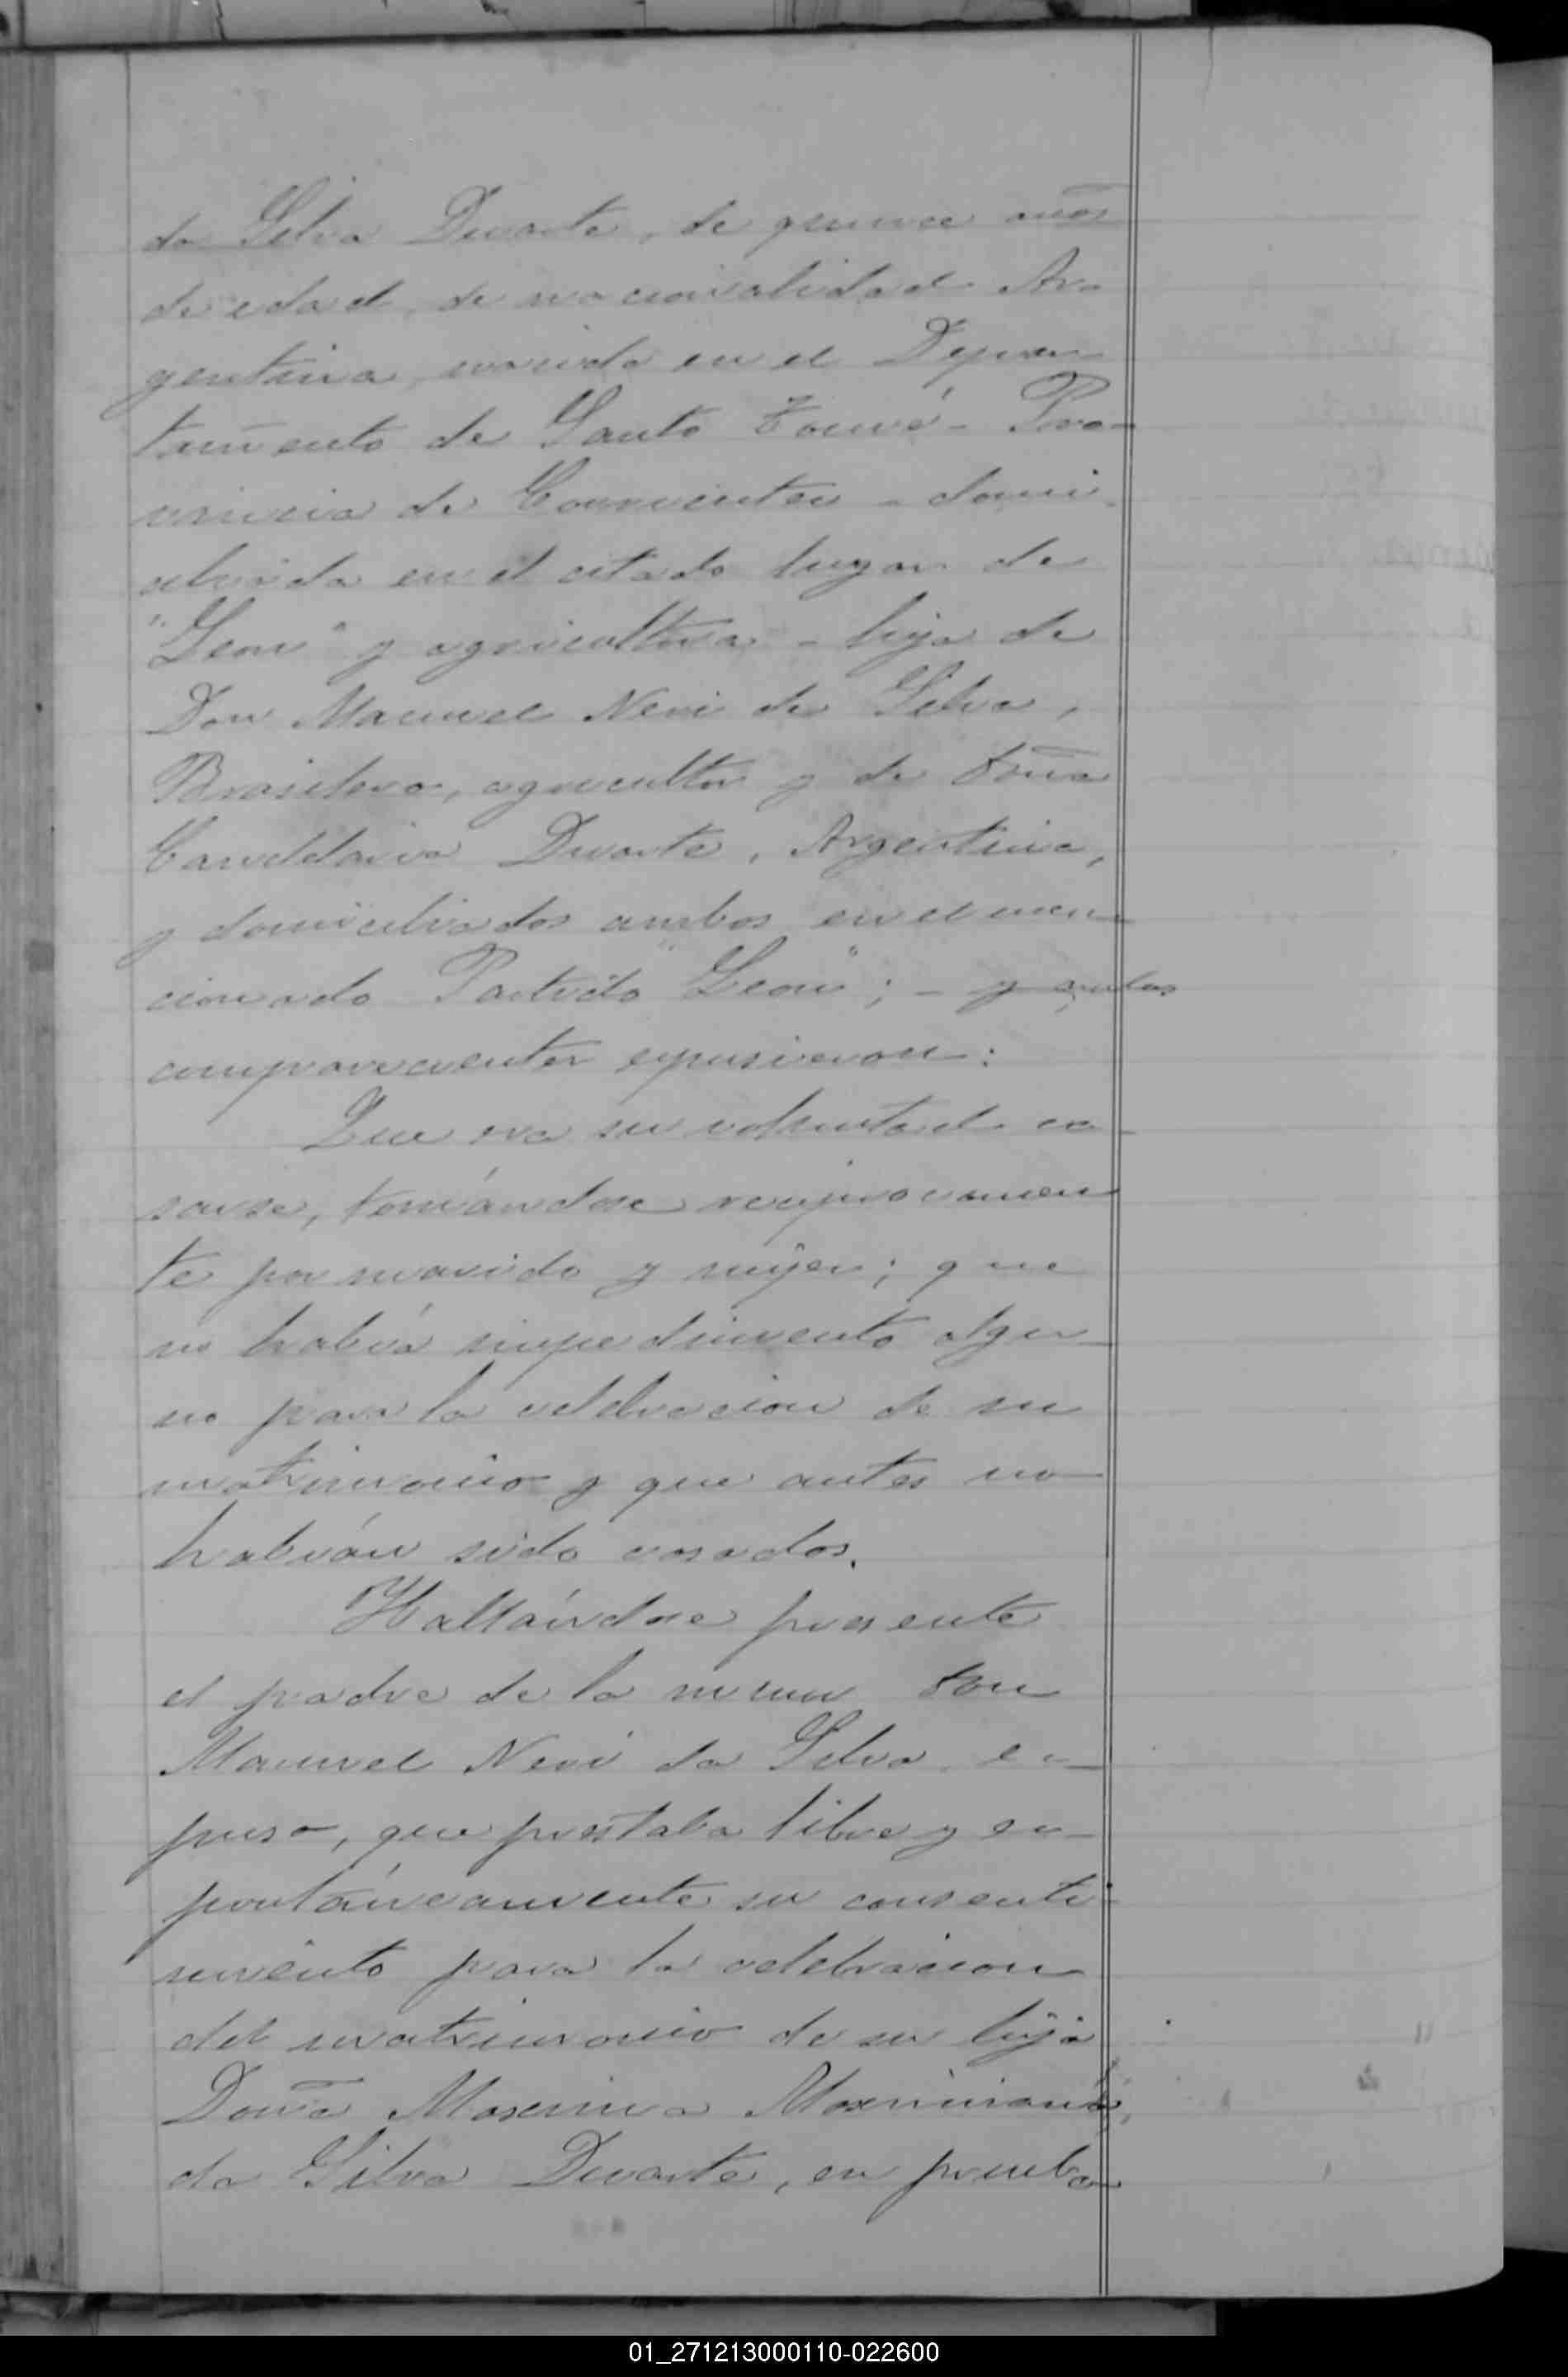 da Silva Duarte, de quince años
de edad, de nacionalidad Ar-
gentina, nacida en el Depar-
tamento de Santo Tomé - Pro-
vincia de Corrientes - domi-
ciliada en el citado lugar de
"Leon" y agricultora - hija de
Don Manuel Neri de Silva,
Brasilero, agricultor y de Doña
Candelaria Duarte, Argentina,
y domiciliados ambos en el men-
cionado Partido "Leon"; - y ambos
comparecientes expusieron:
Que era su voluntad ca-
sarse, tomándose reciprocamen
te por marido y mujer; que
no habia impedimento algu-
no para la celebracion de su
matrimonio y que antes no
habián sido casados.
Hallándose presente
el padre de la menor Don
Manuel Neri da Silva, ex-
puso, que prestaba libre y es-
pontáneamente su consenti-
miento para la celebracion
del matrimonio de su hija
Doña Maxima Maximiana
da Silva Duarte, en prueba
01_271213000110-022600